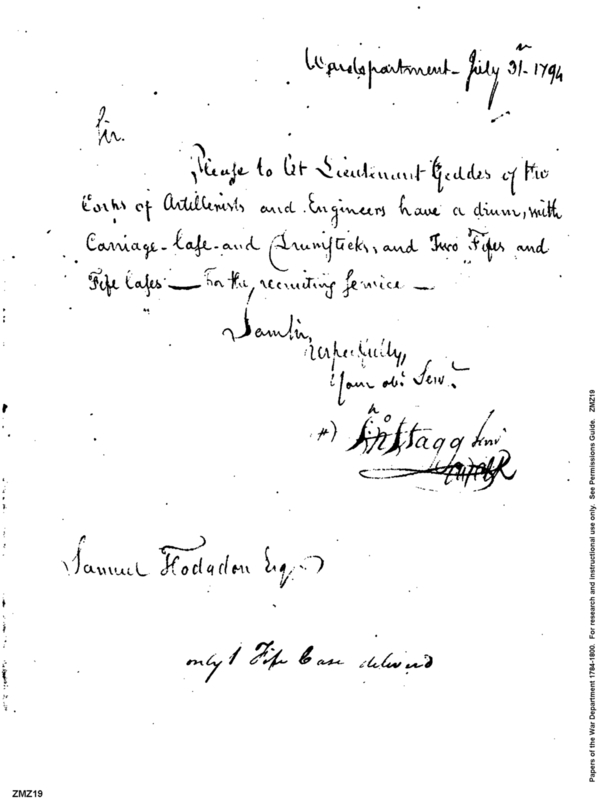 War department - July 31st 1794
Sir.
Please to let Lieutenant Geddes of the
Corps of Artillerists and Engineers have a drum, with
Carriage - Case - and Drumsticks, and Two Fifes and
Fife Cases — for the recruiting service —
I am Sir,
respectfully,
Your obt. Servt.
Jno Stagg Junr
Samuel Hodgdon Esqr
only 1 Fife Case deliverd
ZMZ19
Papers of the War Department 1784-1800. For research and instructional use only. See Permissions Guide. ZMZ19